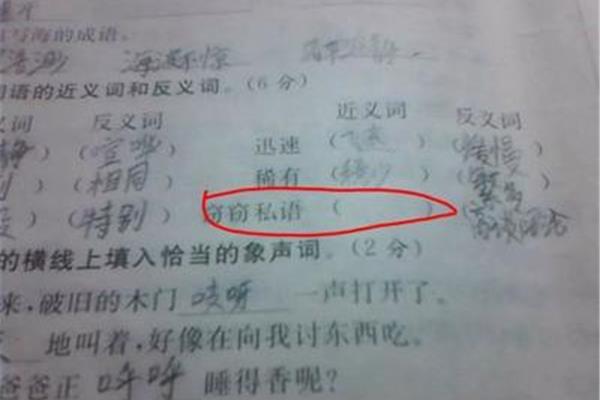 写海的成语。
海 不惊
词语的近义词和反义词。(6分)
义词 反义词 近义词 反义词
静) (喧哗) 迅速 (飞速) (缓慢)
) (相同) 稀有 (稀少) (繁多)
) (特别) 窃窃私语 ( ) (高谈阔论
的横线上填入恰当的象声词。(2分)
来,破旧的木门 吱呀 一声打开了。
地叫着,好像在向我讨东西吃。
爸爸正 呼呼 睡得香呢?